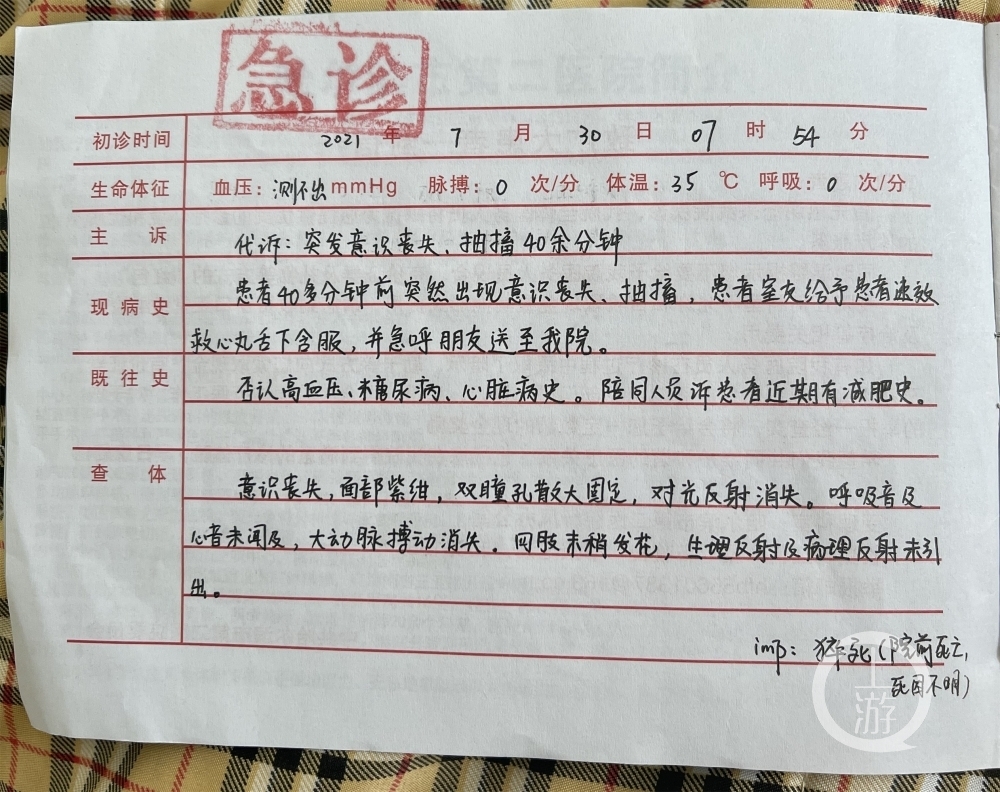 急诊
初诊时间 2021 年 7 月 30 日 07 时 54 分
生命体征 血压：测不出 mmHg 脉搏：0 次/分 体温：35 ℃ 呼吸：0 次/分
主诉 代诉：突发意识丧失、抽搐40余分钟
患者40多分钟前突然出现意识丧失、抽搐，患者室友给予患者速效
现病史
救心丸舌下含服，并急呼朋友送至我院。
既往史 否认高血压、糖尿病、心脏病史。陪同人员诉患者近期有减肥史。
查体 意识丧失，面部紫绀，双瞳孔散大固定，对光反射消失。呼吸音及
心音未闻及，大动脉搏动消失。四肢末梢发花，生理反射及病理反射未引
出。
imp：猝死（院前死亡，
死因不明）
上游